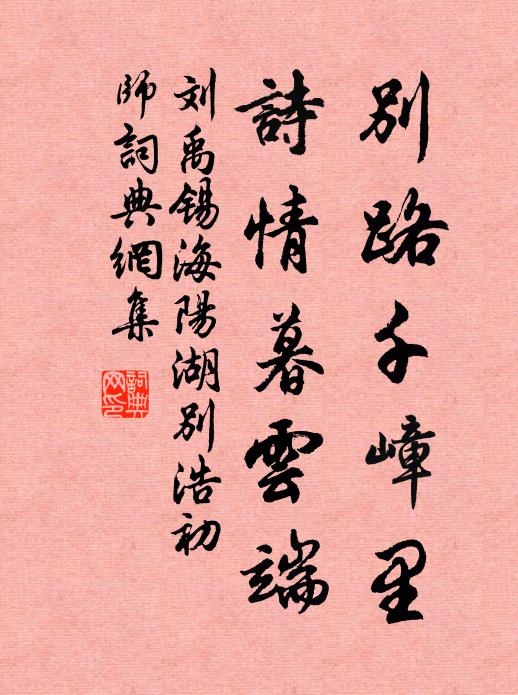 別路千嶂里
詩情暮雲端
刘禹锡海陽湖別浩初
師詞典網集
詞典
网印